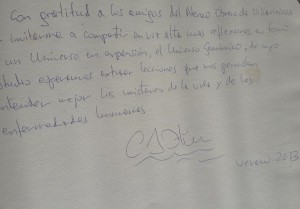 Con gratitud a los amigos del Ateneo Obrero de Villaviciosa
invitarme a compartir en voz alta mis reflexiones en torno
un Universo en expansión, el Universo Genómico, de cuyo
estudio esperamos extraer lecciones que nos permitan
entender mejor los misterios de la vida y de las
enfermedades humanas.
Verano 2013